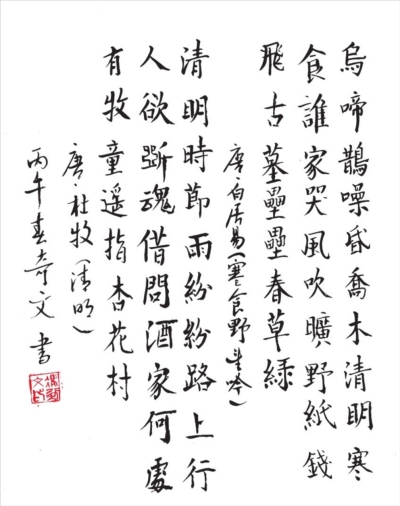 烏啼鵲噪昏喬木清明寒
食誰家哭風吹曠野紙錢
飛古墓壘壘春草綠
唐·白居易(寒食野望吟)
清明時節雨紛紛路上行
人欲斷魂借問酒家何處
有牧童遥指杏花村
唐·杜牧(清明)
丙午春奇文書